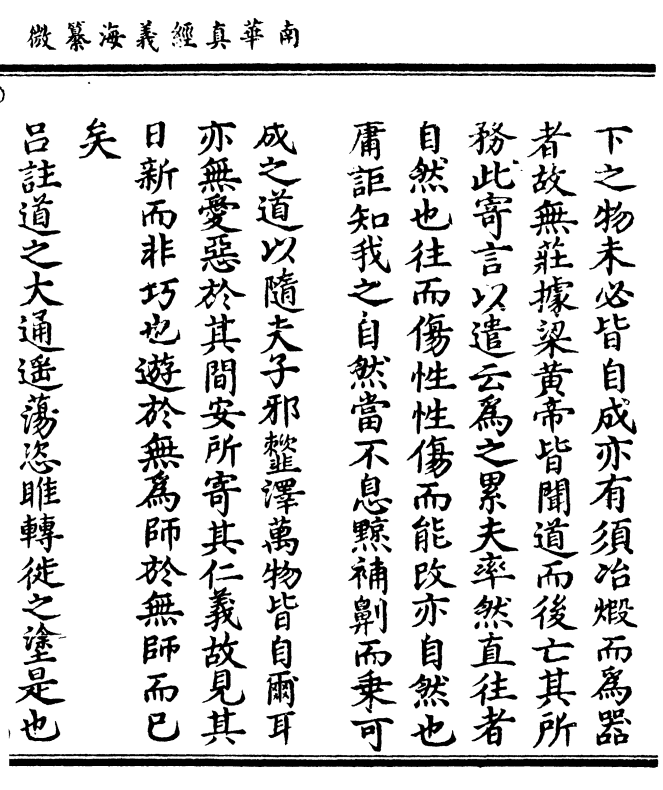 南華真經義海纂微
下之物未必皆自成亦有須冶煆而為器
者故無莊據梁黄帝皆聞道而後亡其所
務此寄言以遣云為之累夫率然直往者
自然也往而傷性性傷而能改亦自然也
庸詎知我之自然當不息黥補劓而乗可
成之道以隨夫子邪䪠澤萬物皆自爾耳
亦無愛惡於其間安所寄其仁義故見其
日新而非巧也遊於無為師於無師而已
矣
吕註道之大通遥蕩恣睢轉徙之塗是也